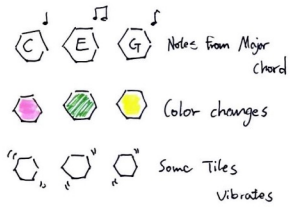 C E G Notes from Major
Chord
Color changes
Some Tiles
Vibrates